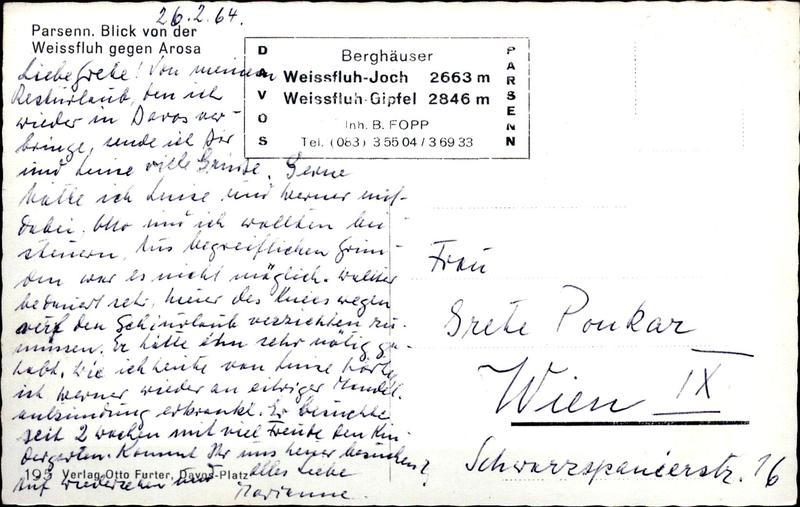 26.2.64.
Parsenn. Blick von der
Weissfluh gegen Arosa
DAVOS
PARSENN
Berghäuser
Weissfluh-Joch 2663 m
Weissfluh-Gipfel 2846 m
Inh. B. FOPP
Tel. (083) 3 55 04 / 3 69 33
Liebe Grete! Von meinem
Resturlaub, den ich
wieder in Davos ver-
bringe, sende ich Dir
und Luise viele Grüsse. Gerne
hätte ich Luise und Werner mit-
dabei. Otto und ich wollten bei
steuern. Aus begreiflichen Grün-
den war es nicht möglich. Walter
bedauert sehr, heuer des Knies wegen
auf den Schiurlaub verzichten zu
müssen. Er hätte ihn sehr nötig ge-
habt. Wie ich heute von Luise hörte
ist Werner wieder an eitriger Mandel-
entzündung erkrankt. Er besuchte
seit 2 Wochen mit viel Freude den Kin-
dergarten. Kommt Ihr uns heuer besuchen?
Auf wiedersehen und alles Liebe
Marianne.
193 Verlag Otto Furter, Davos-Platz
Frau
Grete Ponkar
Wien IX
Schwarzspanierstr. 16